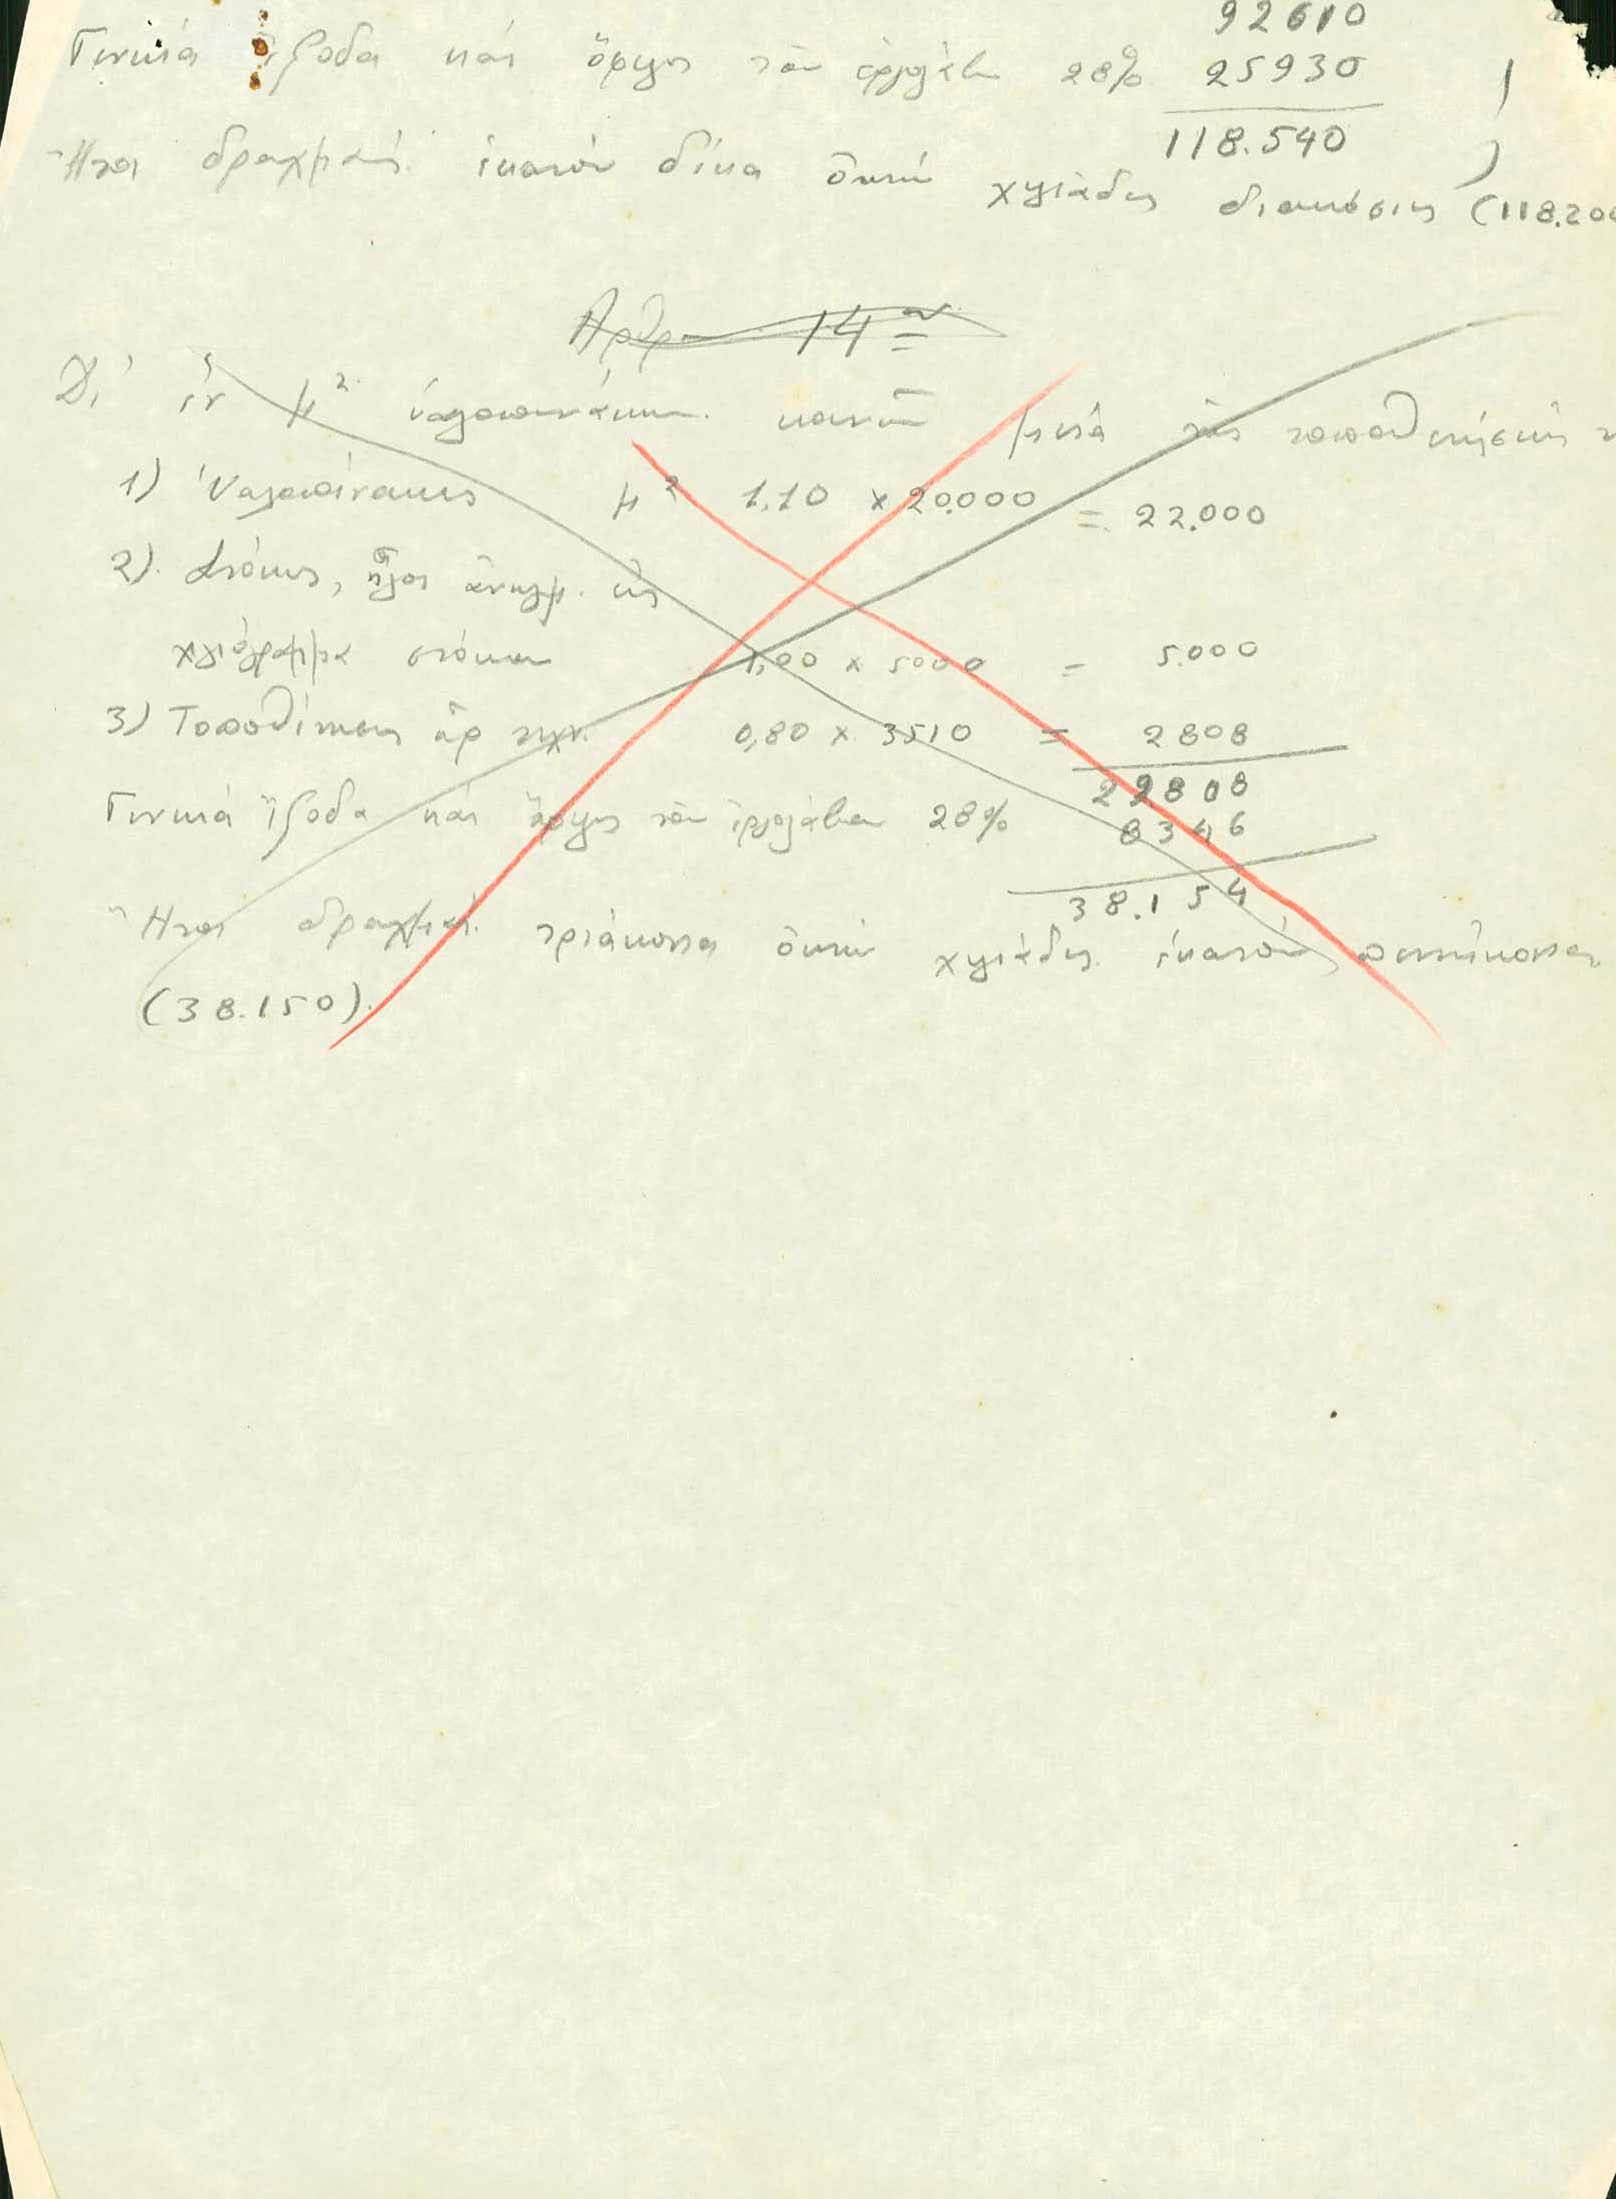 92610
Γενικά ἔξοδα καί ὄφελος τοῦ ἐργολάβου 28% 25930
118.540
Ἤτοι δραχμαί ἑκατόν δέκα ὀκτώ χιλιάδες διακόσιες (118.200
Ἄρθρον 14ον
Δι' ἕν μ2 ὑαλοπινάκων κοινῶν μετά τῆς τοποθετήσεως
1) Ὑαλοπίνακες μ2 1,10 × 20.000 = 22.000
2) Στόκος, ἧλοι ἀναλφ. εἰς
χιλιόγραμμα στόκου 1,00 × 5000 = 5.000
3) Τοποθέτησις ὥρ τεχν. 0,80 × 3510 = 2808
29808
Γενικά ἔξοδα καί ὄφελος τοῦ ἐργολάβου 28% 8346
38.154
Ἤτοι δραχμαί τριάκοντα ὀκτώ χιλιάδες ἑκατόν πεντήκοντα
(38.150).